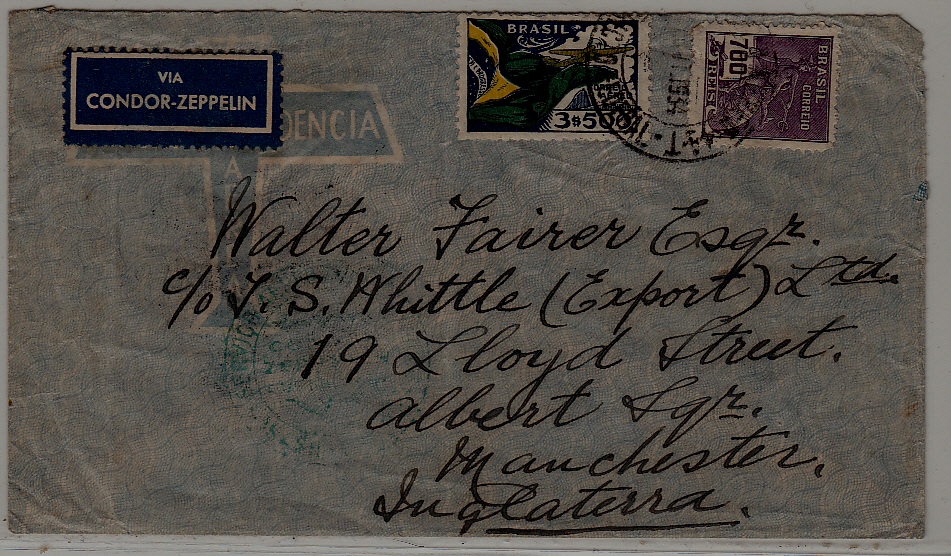 VIA
CONDOR-ZEPPELIN
DENCIA
A
BRASIL
3$500
BRASIL
CORREIO
700
REIS
Walter Fairer Esqr.
c/o T. S. Whittle (Export) Ltd.
19 Lloyd Street.
Albert Sqr.
Manchester.
Inglaterra.